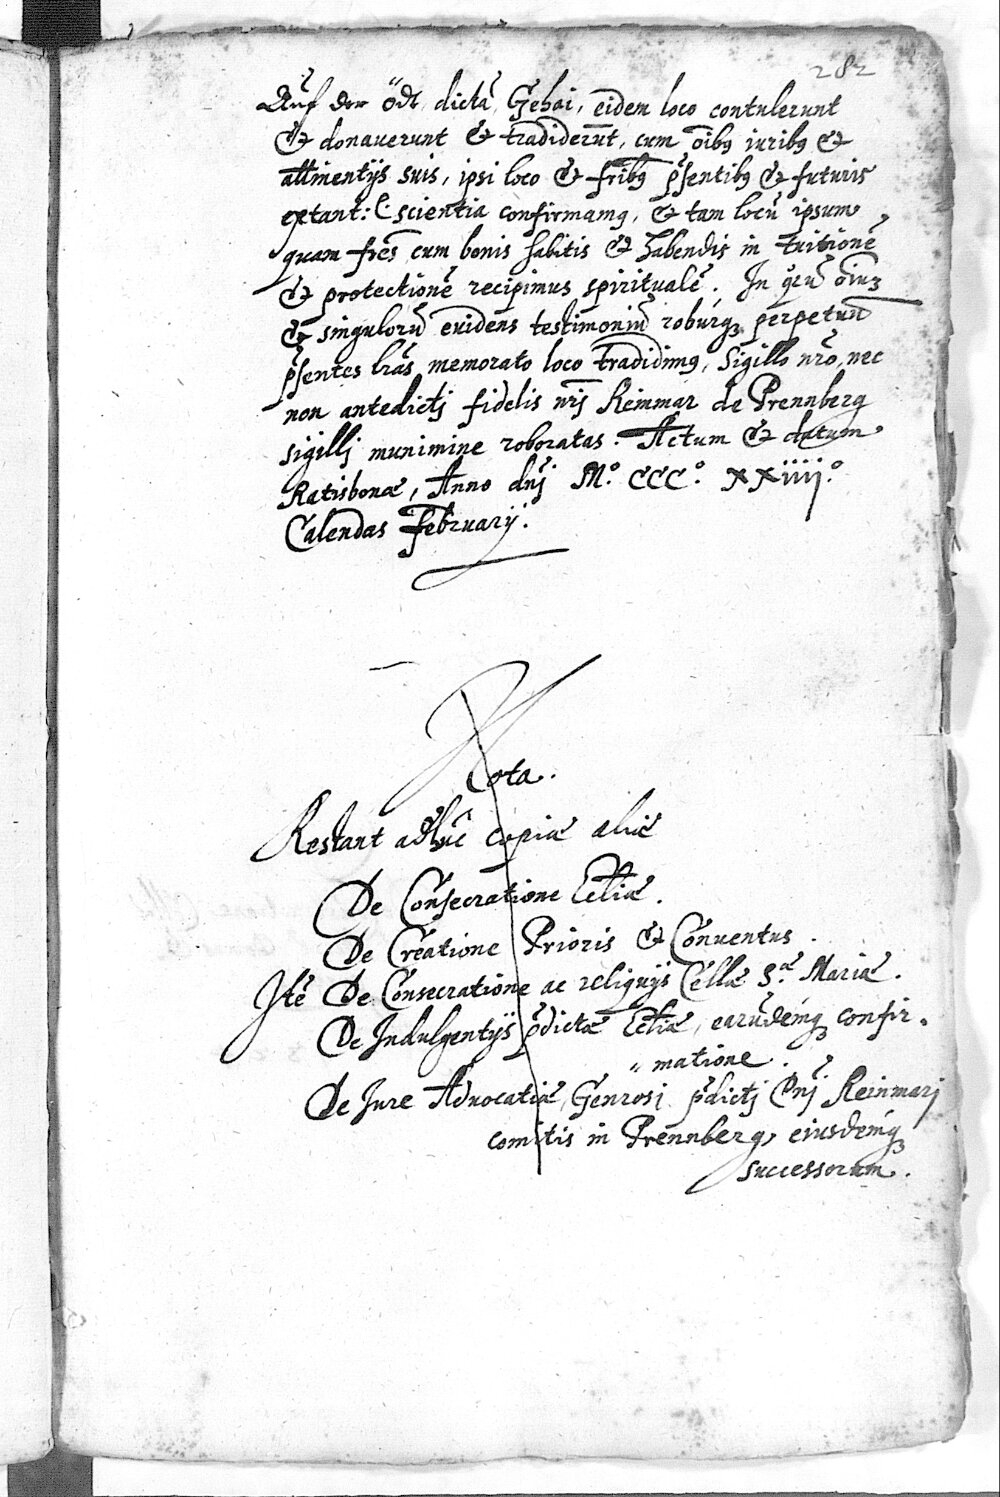 282
Auf der Ödt, dictā Gehai, eidem loco contulerunt
& donauerunt & tradiderūt, cum oībȝ iuribȝ &
attinentijs suis, ipsi loco & frībȝ p̄sentibȝ & futuris
extant: scientia confirmamȝ, & tam locū ipsum
quam frēs cum bonis habitis & habendis in tuitionē
& protectionē recipimus spiritualē. In qȝ̄ū oīuȝ
& singulorū euidens testimoniū roburqȝ perpetuū
p̄sentes lrās memorato loco tradidimȝ, Sigillo nrō, nec
non antedictj fidelis nrj Reimmar de Prennberg
sigillj munimine roboratas. Actum & datum
Ratisbonæ, Anno dnj M.º CCC.º XXiiij.º
Calendas february.
Nota.
Restant adhuc copiæ aliæ
De Consecratione Ecliæ.
De Creatione Prioris & Conuentus.
Itē De Consecratione ac reliquijs Cellæ S.æ Mariæ.
De Indulgentijs p̄dictæ Ecliæ, earūdemqȝ confir-
matione.
De Jure Aduocatiæ, Genrosi p̄dictj Dnj Reinmarj
comitis in Prennberg, eiusdemqȝ
successorum.